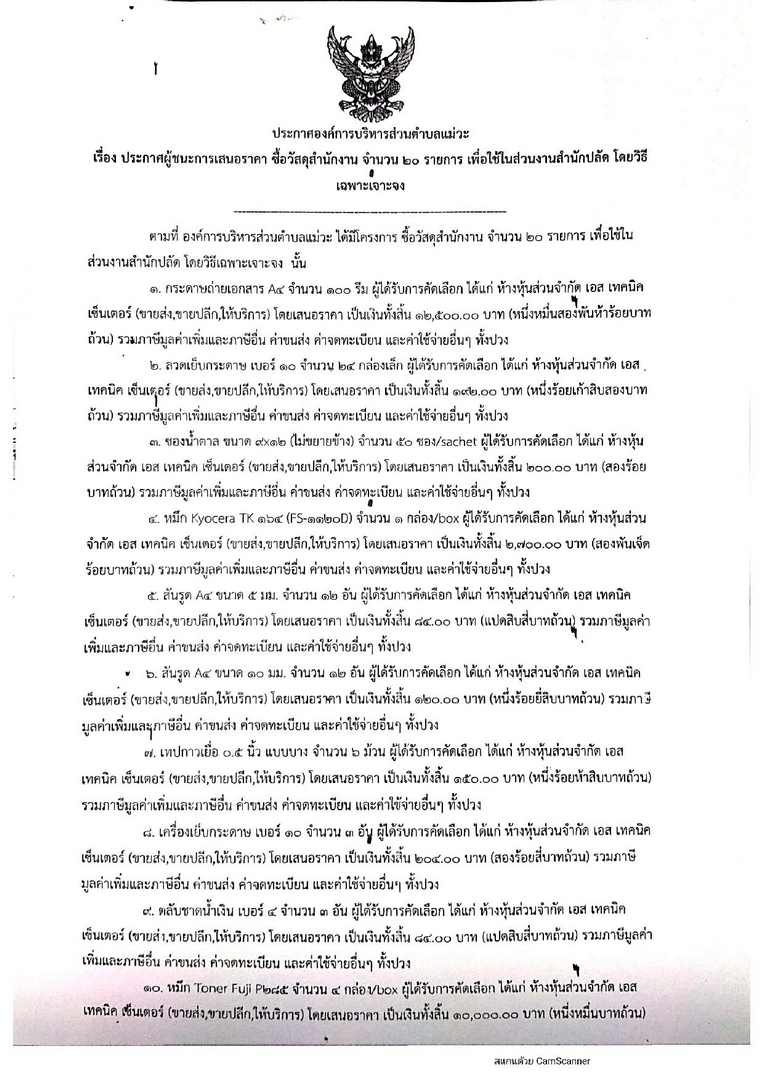 ประกาศองค์การบริหารส่วนตำบลแม่วะ
เรื่อง ประกาศผู้ชนะการเสนอราคา ซื้อวัสดุสำนักงาน จำนวน ๒๐ รายการ เพื่อใช้ในส่วนงานสำนักปลัด โดยวิธี
เฉพาะเจาะจง
ตามที่ องค์การบริหารส่วนตำบลแม่วะ ได้มีโครงการ ซื้อวัสดุสำนักงาน จำนวน ๒๐ รายการ เพื่อใช้ใน
ส่วนงานสำนักปลัด โดยวิธีเฉพาะเจาะจง นั้น
๑. กระดาษถ่ายเอกสาร A๔ จำนวน ๑๐๐ รีม ผู้ได้รับการคัดเลือก ได้แก่ ห้างหุ้นส่วนจำกัด เอส เทคนิค
เซ็นเตอร์ (ขายส่ง,ขายปลีก,ให้บริการ) โดยเสนอราคา เป็นเงินทั้งสิ้น ๑๒,๕๐๐.๐๐ บาท (หนึ่งหมื่นสองพันห้าร้อยบาท
ถ้วน) รวมภาษีมูลค่าเพิ่มและภาษีอื่น ค่าขนส่ง ค่าจดทะเบียน และค่าใช้จ่ายอื่นๆ ทั้งปวง
๒. ลวดเย็บกระดาษ เบอร์ ๑๐ จำนวน ๒๔ กล่องเล็ก ผู้ได้รับการคัดเลือก ได้แก่ ห้างหุ้นส่วนจำกัด เอส
เทคนิค เซ็นเตอร์ (ขายส่ง,ขายปลีก,ให้บริการ) โดยเสนอราคา เป็นเงินทั้งสิ้น ๑๙๒.๐๐ บาท (หนึ่งร้อยเก้าสิบสองบาท
ถ้วน) รวมภาษีมูลค่าเพิ่มและภาษีอื่น ค่าขนส่ง ค่าจดทะเบียน และค่าใช้จ่ายอื่นๆ ทั้งปวง
๓. ซองน้ำตาล ขนาด ๙x๑๒ (ไม่ขยายข้าง) จำนวน ๕๐ ซอง/sachet ผู้ได้รับการคัดเลือก ได้แก่ ห้างหุ้น
ส่วนจำกัด เอส เทคนิค เซ็นเตอร์ (ขายส่ง,ขายปลีก,ให้บริการ) โดยเสนอราคา เป็นเงินทั้งสิ้น ๒๐๐.๐๐ บาท (สองร้อย
บาทถ้วน) รวมภาษีมูลค่าเพิ่มและภาษีอื่น ค่าขนส่ง ค่าจดทะเบียน และค่าใช้จ่ายอื่นๆ ทั้งปวง
๔. หมึก Kyocera TK ๑๖๔ (FS-๑๑๒๐D) จำนวน ๑ กล่อง/box ผู้ได้รับการคัดเลือก ได้แก่ ห้างหุ้นส่วน
จำกัด เอส เทคนิค เซ็นเตอร์ (ขายส่ง,ขายปลีก,ให้บริการ) โดยเสนอราคา เป็นเงินทั้งสิ้น ๒,๗๐๐.๐๐ บาท (สองพันเจ็ด
ร้อยบาทถ้วน) รวมภาษีมูลค่าเพิ่มและภาษีอื่น ค่าขนส่ง ค่าจดทะเบียน และค่าใช้จ่ายอื่นๆ ทั้งปวง
๕. สันรูด A๔ ขนาด ๕ มม. จำนวน ๑๒ อัน ผู้ได้รับการคัดเลือก ได้แก่ ห้างหุ้นส่วนจำกัด เอส เทคนิค
เซ็นเตอร์ (ขายส่ง,ขายปลีก,ให้บริการ) โดยเสนอราคา เป็นเงินทั้งสิ้น ๘๔.๐๐ บาท (แปดสิบสี่บาทถ้วน) รวมภาษีมูลค่า
เพิ่มและภาษีอื่น ค่าขนส่ง ค่าจดทะเบียน และค่าใช้จ่ายอื่นๆ ทั้งปวง
๖. สันรูด A๔ ขนาด ๑๐ มม. จำนวน ๑๒ อัน ผู้ได้รับการคัดเลือก ได้แก่ ห้างหุ้นส่วนจำกัด เอส เทคนิค
เซ็นเตอร์ (ขายส่ง,ขายปลีก,ให้บริการ) โดยเสนอราคา เป็นเงินทั้งสิ้น ๑๒๐.๐๐ บาท (หนึ่งร้อยยี่สิบบาทถ้วน) รวมภาษี
มูลค่าเพิ่มและภาษีอื่น ค่าขนส่ง ค่าจดทะเบียน และค่าใช้จ่ายอื่นๆ ทั้งปวง
๗. เทปกาวเยื่อ ๐.๕ นิ้ว แบบบาง จำนวน ๖ ม้วน ผู้ได้รับการคัดเลือก ได้แก่ ห้างหุ้นส่วนจำกัด เอส
เทคนิค เซ็นเตอร์ (ขายส่ง,ขายปลีก,ให้บริการ) โดยเสนอราคา เป็นเงินทั้งสิ้น ๑๕๐.๐๐ บาท (หนึ่งร้อยห้าสิบบาทถ้วน)
รวมภาษีมูลค่าเพิ่มและภาษีอื่น ค่าขนส่ง ค่าจดทะเบียน และค่าใช้จ่ายอื่นๆ ทั้งปวง
๘. เครื่องเย็บกระดาษ เบอร์ ๑๐ จำนวน ๓ อัน ผู้ได้รับการคัดเลือก ได้แก่ ห้างหุ้นส่วนจำกัด เอส เทคนิค
เซ็นเตอร์ (ขายส่ง,ขายปลีก,ให้บริการ) โดยเสนอราคา เป็นเงินทั้งสิ้น ๒๐๔.๐๐ บาท (สองร้อยสี่บาทถ้วน) รวมภาษี
มูลค่าเพิ่มและภาษีอื่น ค่าขนส่ง ค่าจดทะเบียน และค่าใช้จ่ายอื่นๆ ทั้งปวง
๙. ตลับชาดน้ำเงิน เบอร์ ๔ จำนวน ๓ อัน ผู้ได้รับการคัดเลือก ได้แก่ ห้างหุ้นส่วนจำกัด เอส เทคนิค
เซ็นเตอร์ (ขายส่ง,ขายปลีก,ให้บริการ) โดยเสนอราคา เป็นเงินทั้งสิ้น ๘๔.๐๐ บาท (แปดสิบสี่บาทถ้วน) รวมภาษีมูลค่า
เพิ่มและภาษีอื่น ค่าขนส่ง ค่าจดทะเบียน และค่าใช้จ่ายอื่นๆ ทั้งปวง
๑๐. หมึก Toner Fuji P๒๘๕ จำนวน ๔ กล่อง/box ผู้ได้รับการคัดเลือก ได้แก่ ห้างหุ้นส่วนจำกัด เอส
เทคนิค เซ็นเตอร์ (ขายส่ง,ขายปลีก,ให้บริการ) โดยเสนอราคา เป็นเงินทั้งสิ้น ๑๐,๐๐๐.๐๐ บาท (หนึ่งหมื่นบาทถ้วน)
สแกนด้วย CamScanner